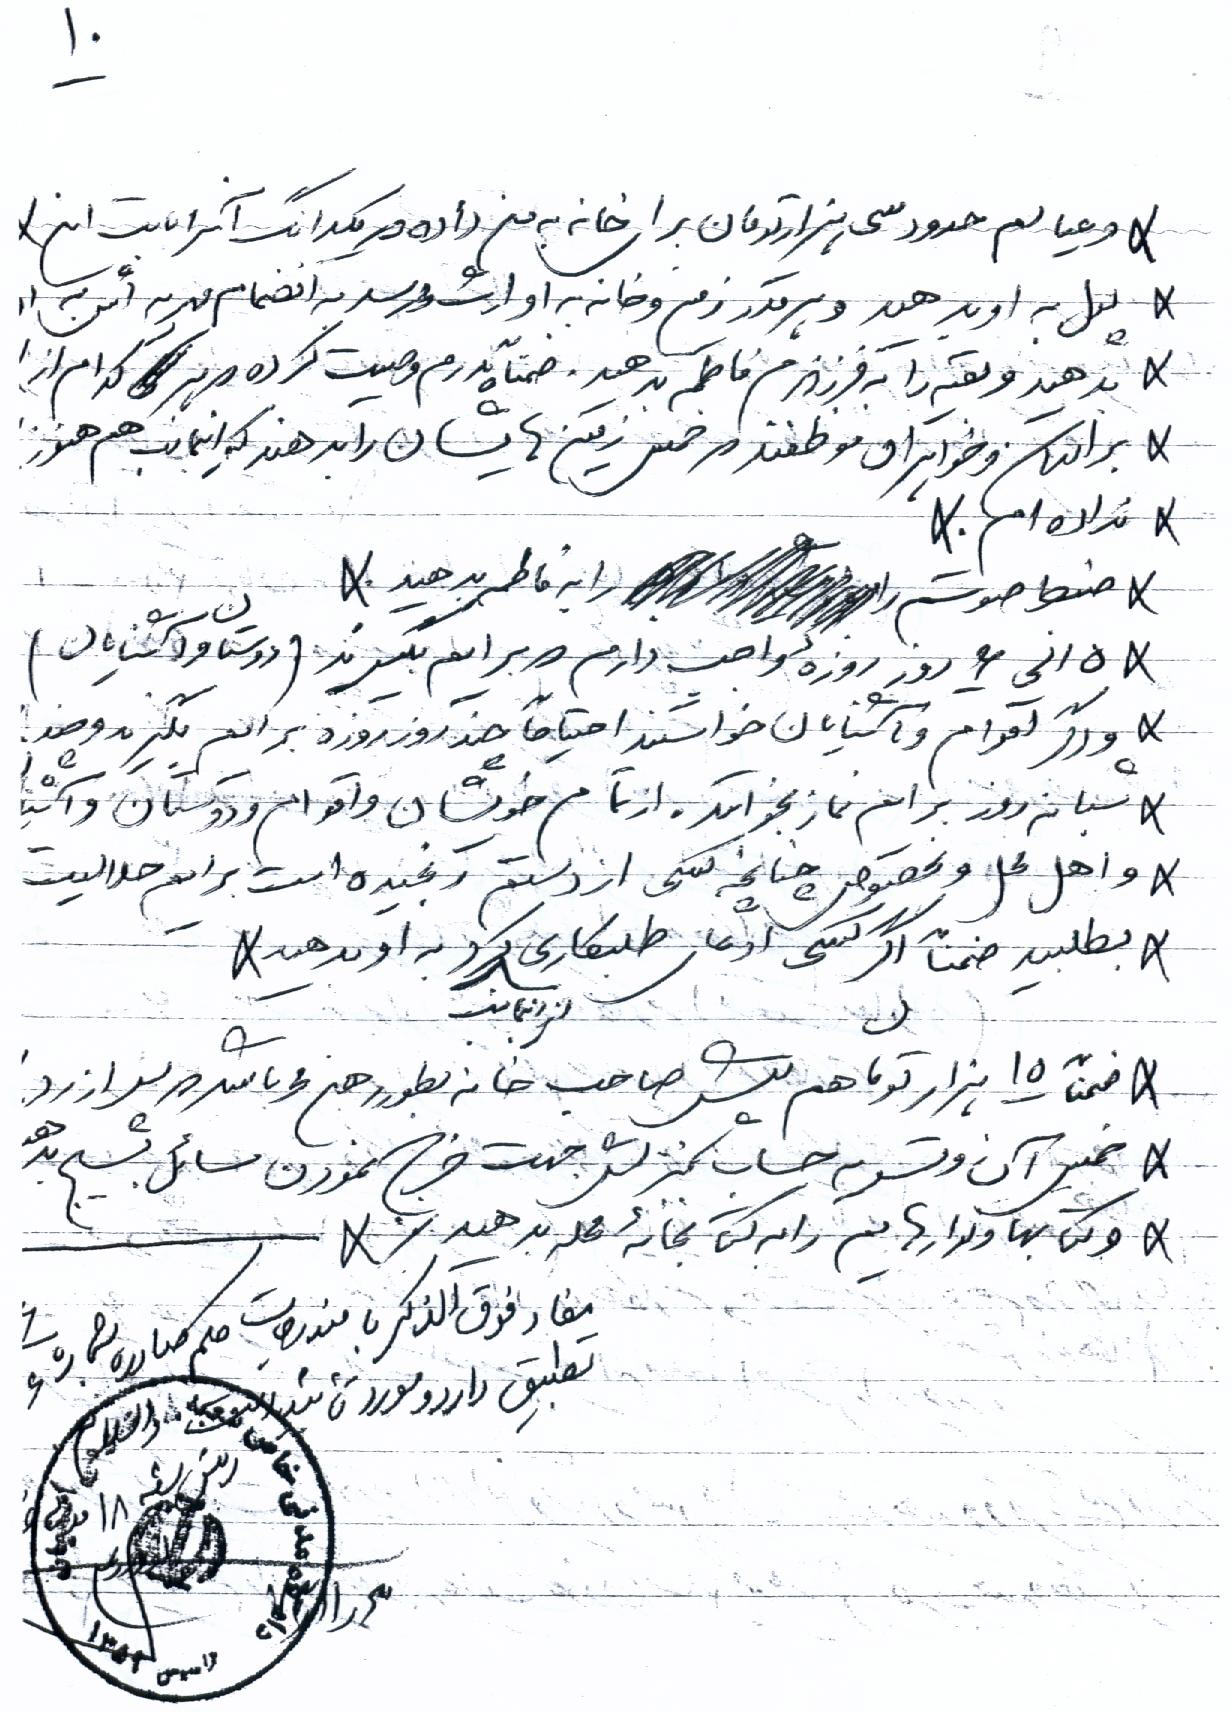 ۱۰
وعیالم حدود سی هزار تومان برای خانه به من داده و یکدانگ آنرا بابت این
پول به او بدهید و هر مقدار زمین و خانه به او ارث میرسد به انضمام مهریه اش به او
بدهید و بقیه را به فرزندم فاطمه بدهید. ضمناً پدرم وصیت کرده در هر کدام از
برادران و خواهران موظفند در خمس زمین هایشان را بدهند که اینجانب هم هنوز
نداده ام.
ضبط صوتم را به فاطمه بدهید.
۵ الی ۶ روز روزهٔ واجب دارم برایم بگیرند (دوستان و آشنایان)
و اگر اقوام و آشنایان خواستند احتیاطاً چند روز روزه برایم بگیرند و چند
شبانه روز برایم نماز بخوانند. از تمام خویشان و اقوام و دوستان و آشنا
و اهل محل و بخصوص چنانچه کسی از دستم رنجیده است برایم حلالیت
بطلبید ضمناً اگر کسی ادعای طلبکاری کرد به او بدهید
از اینجانب
ضمناً ۱۵ هزار تومان هم پیش صاحب خانه بطور رهن می باشد پس از رد
خمس آن و تسویه حساب جهت خرج نمودن مسائل بسیج بدهید
و کتابها و نوارهایم را به کتابخانهٔ محله بدهید.
مفاد فوق الذکر با مندرجات حکم صادره بشماره
تطبیق دارد و مورد تأئید است
رئیس شعبه ۱۸
دادگاه مدنی خاص
تاسیس ۱۳۵۸